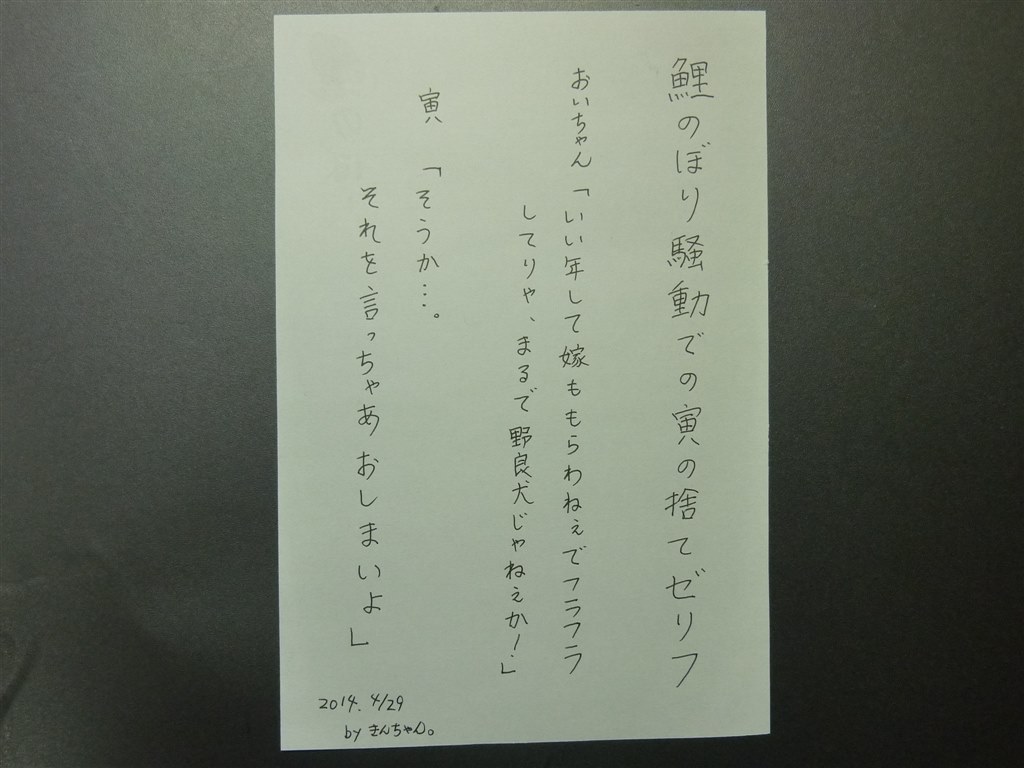 鯉のぼり騒動での寅の捨てゼリフ
おいちゃん「いい年して嫁ももらわねぇでフラフラ
してりゃ、まるで野良犬じゃねえか!」
寅 「そうか…。
それを言っちゃあおしまいよ」
2014. 4/29
by きんちゃん。